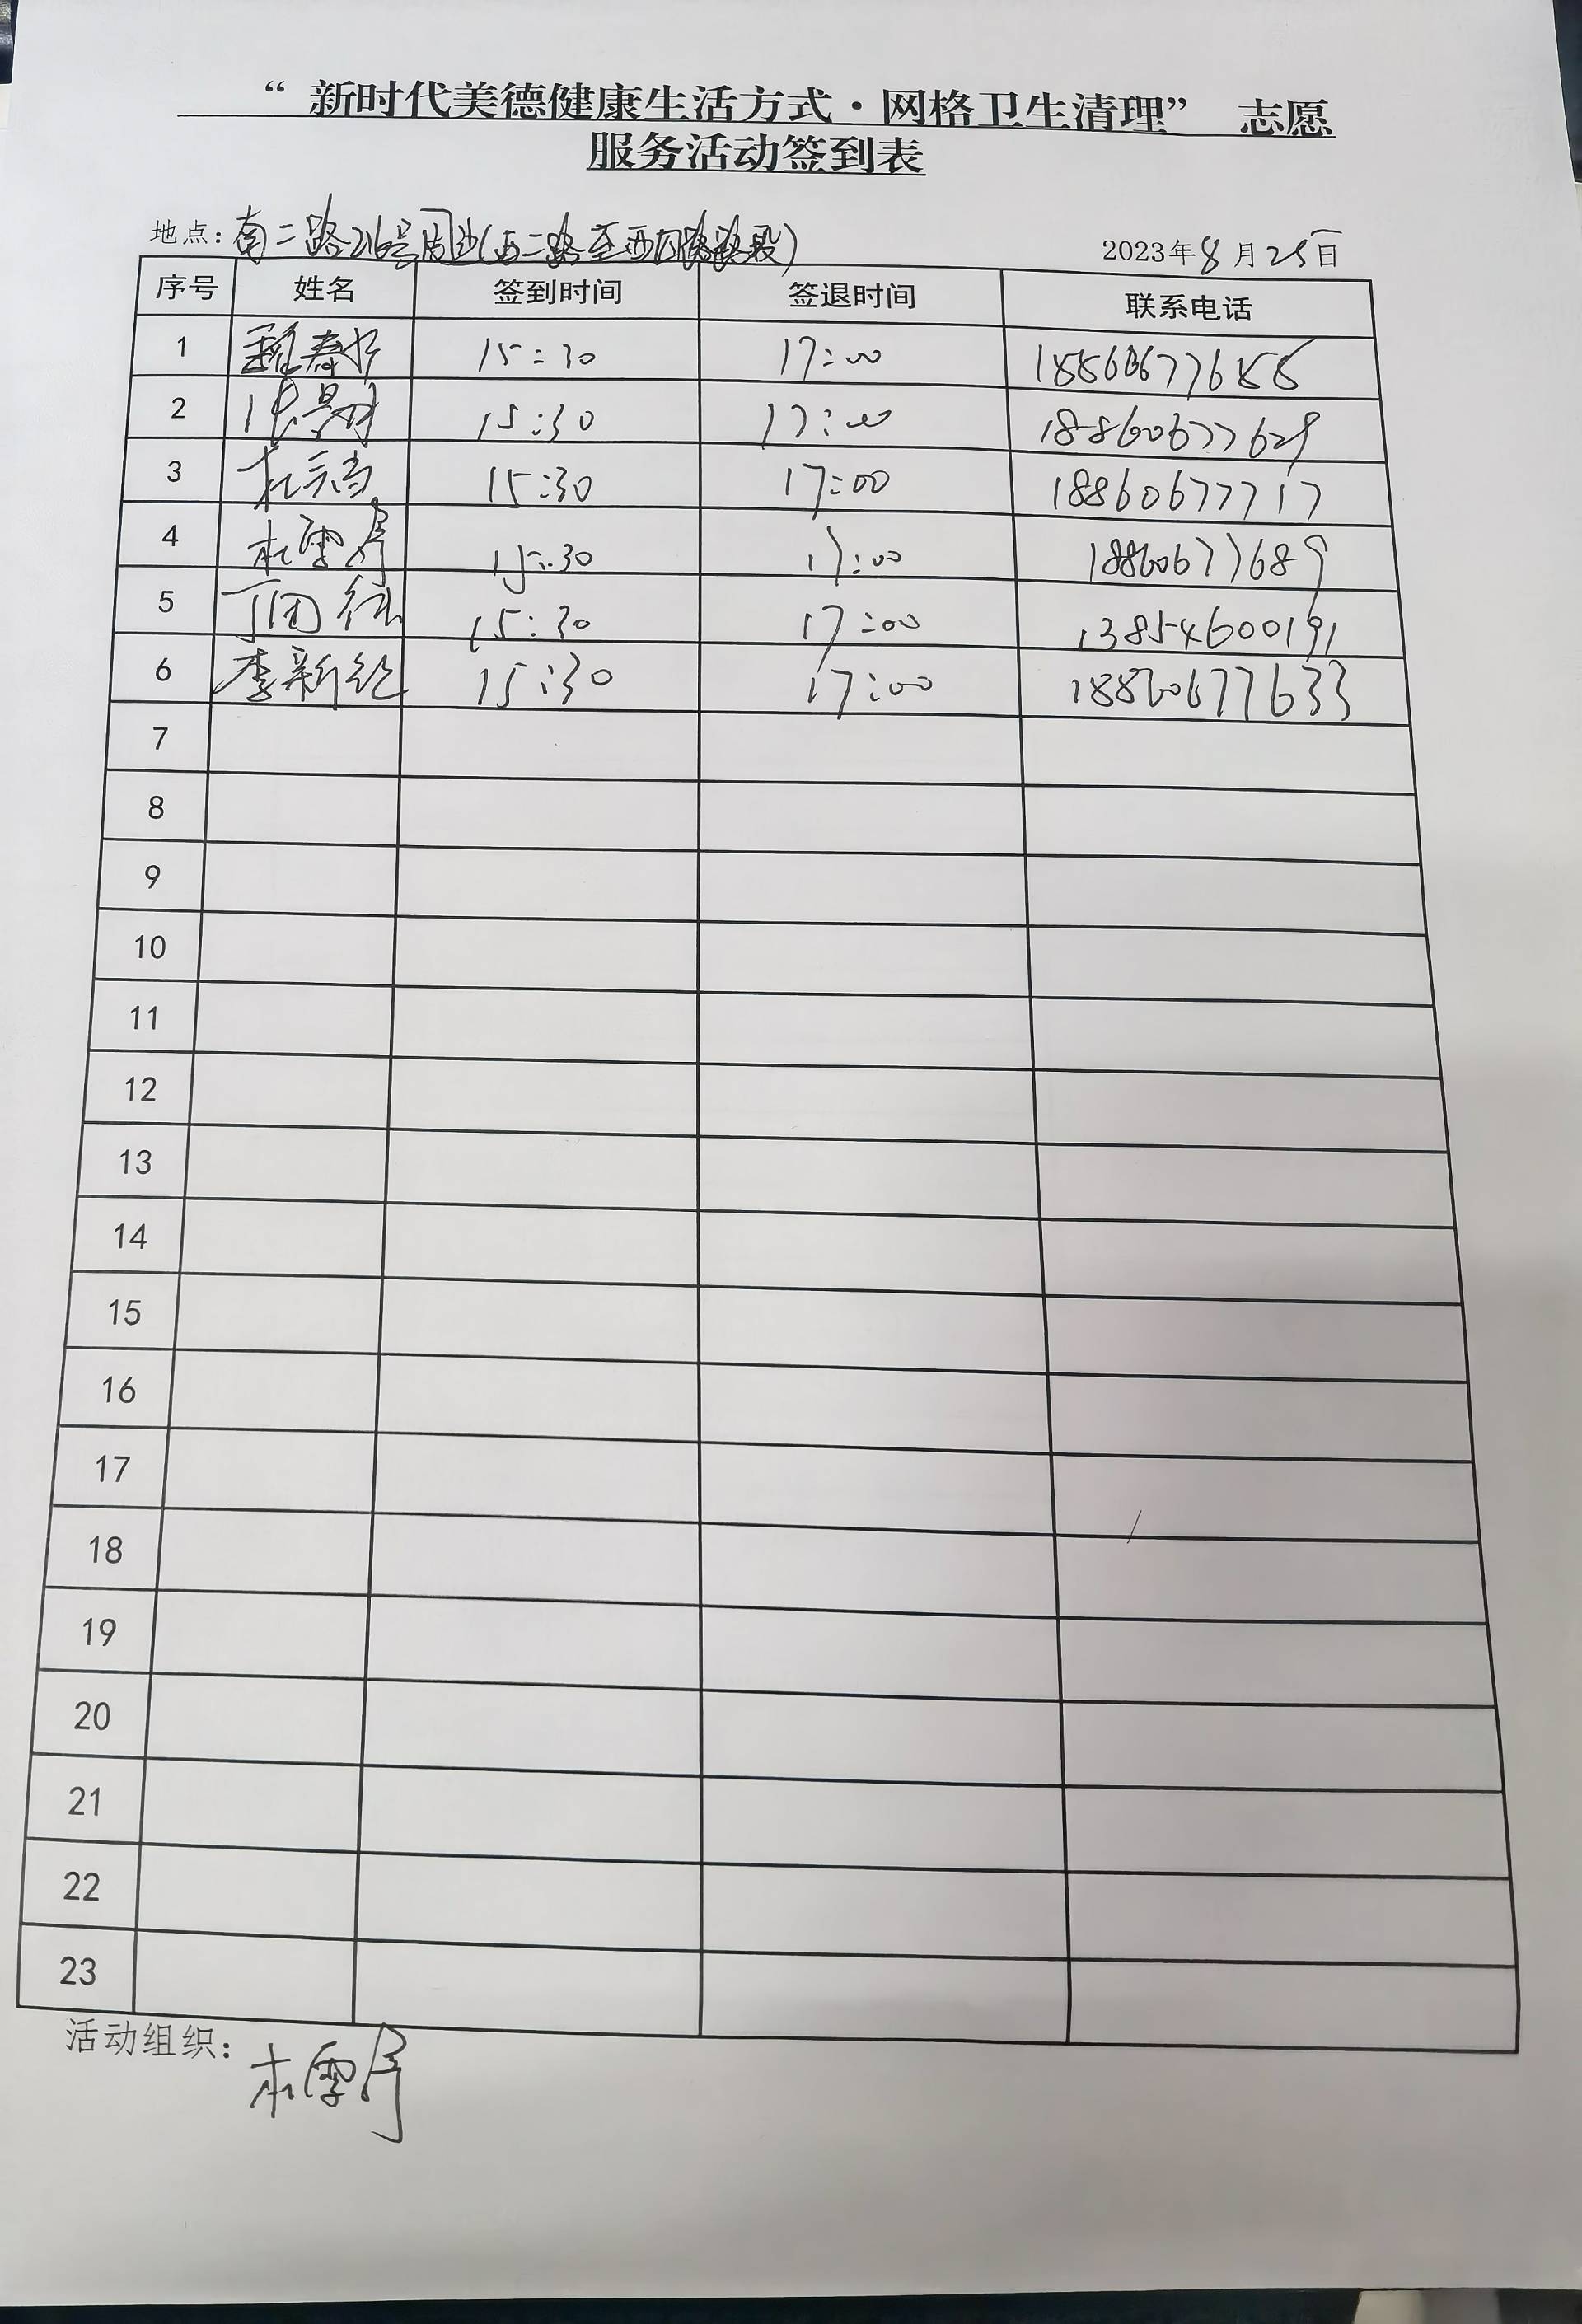 “ 新时代美德健康生活方式·网格卫生清理” 志愿
服务活动签到表
地点: 南二路216号周边(西二路至西四路路段) 2023年8月25日
序号 姓名 签到时间 签退时间 联系电话
1 15:30 17:00
2 15:30 17:00 18860677629
3 15:30 17:00 18860677717
4 杜雪 15:30 17:00 18860677689
5 丁 15:30 17:00 13854600191
6 李新 15:30 17:00 18860677633
7
8
9
10
11
12
13
14
15
16
17
18
19
20
21
22
23
活动组织: 杜雪